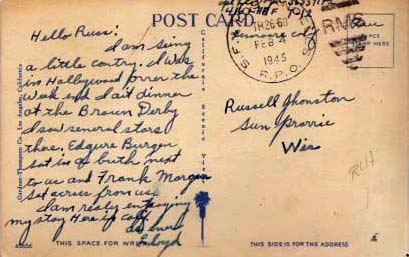 POST CARD
Hello Russ:
I am seing
a little contry. I was
in Hollywood over the
week end I ait dinner
at the Broun Derby
I saw several stars
there. Edgure Burgen
sat in a buth next
to us and Frank Morgin
sat across from us.
I am realy enjoying
my stay Here in Calif
as ever
Lloyd
45656
THIS SPACE FOR WRITING
Gardner-Thompson Co., Los Angeles, California
California Scenic Vi
FEB 4
1945
R.P.O.
RMS
PLACE
STAMP HERE
Russell Jhonston
Sun Prarrie
Wis
THIS SIDE IS FOR THE ADDRESS